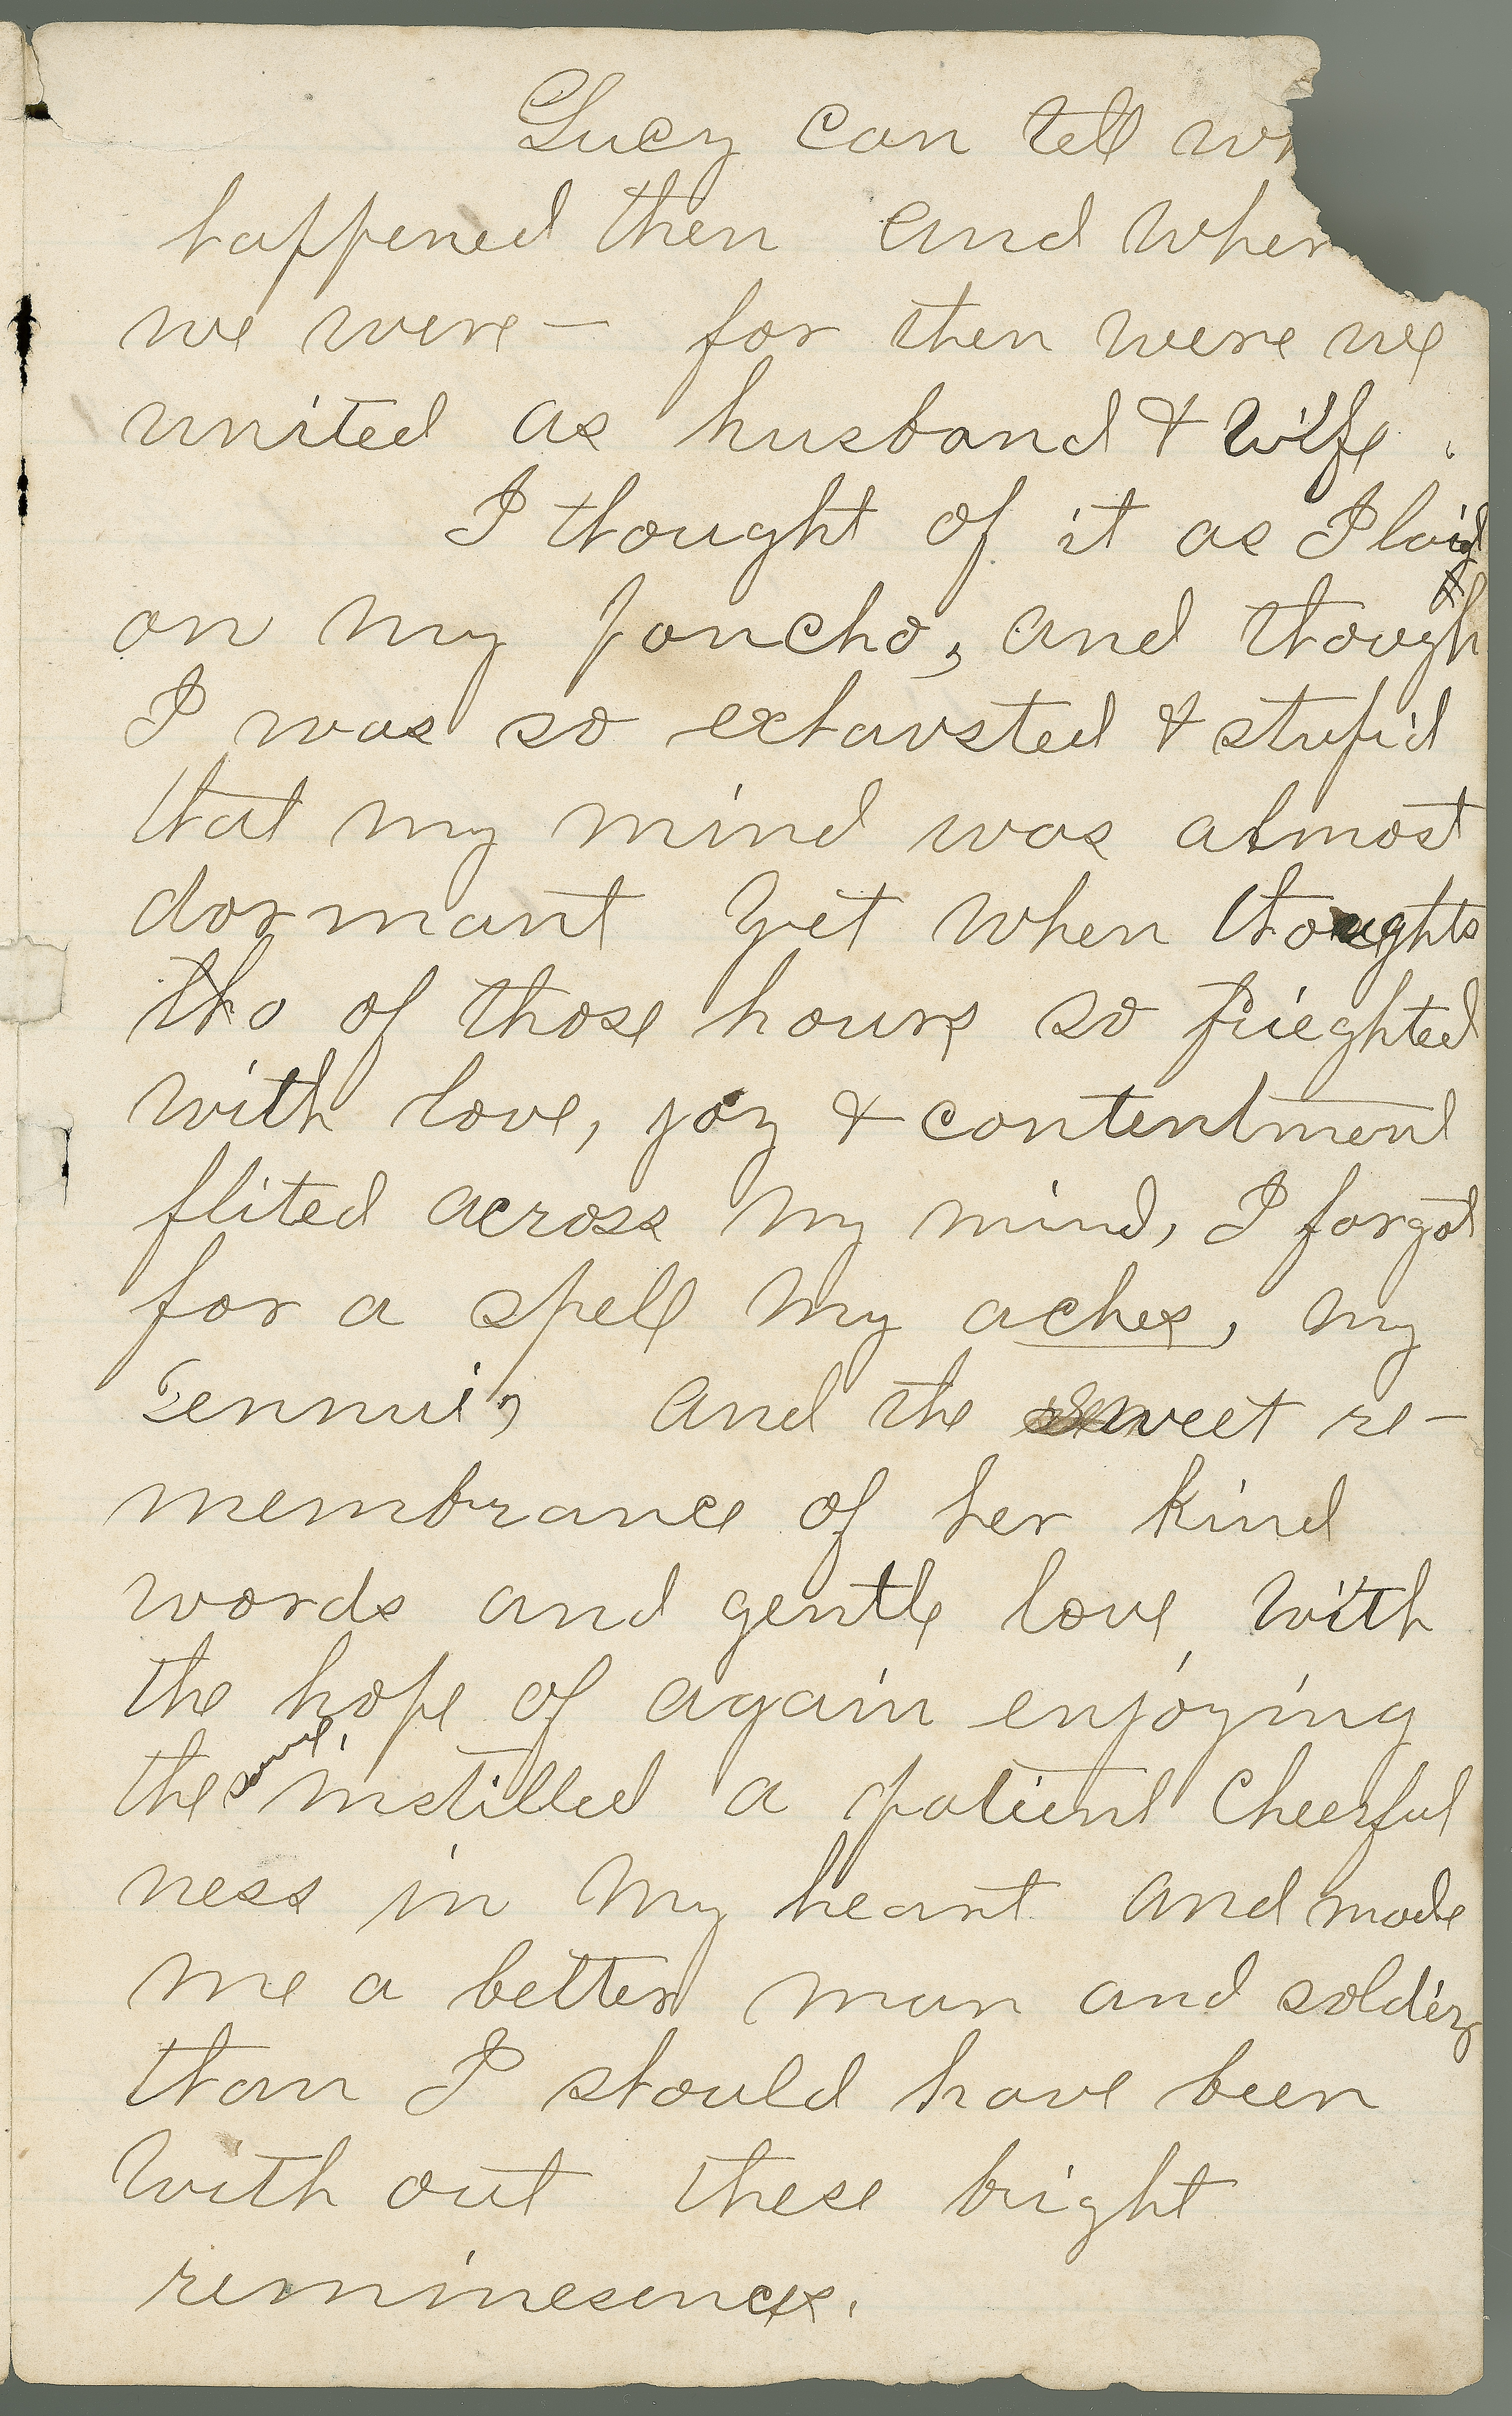 Lucy can tell wh
happened then and wher
we were — for then were we
united as husband & wife.
I thought of it as I laid
on my poncho, and though
I was so exhausted & stupid
that my mind was almost
dormant yet when thoughts
tho of those hours so frieghted
with love, joy & contentment
flited across my mind, I forgot
for a spell my aches, my
ennui, and the sweet re-
membrance of her kind
words and gentle love, with
the hope of again enjoying
the same, instilled a patient cheerful
ness in my heart and made
me a better man and soldier
than I should have been
with out these bright
reminesences.